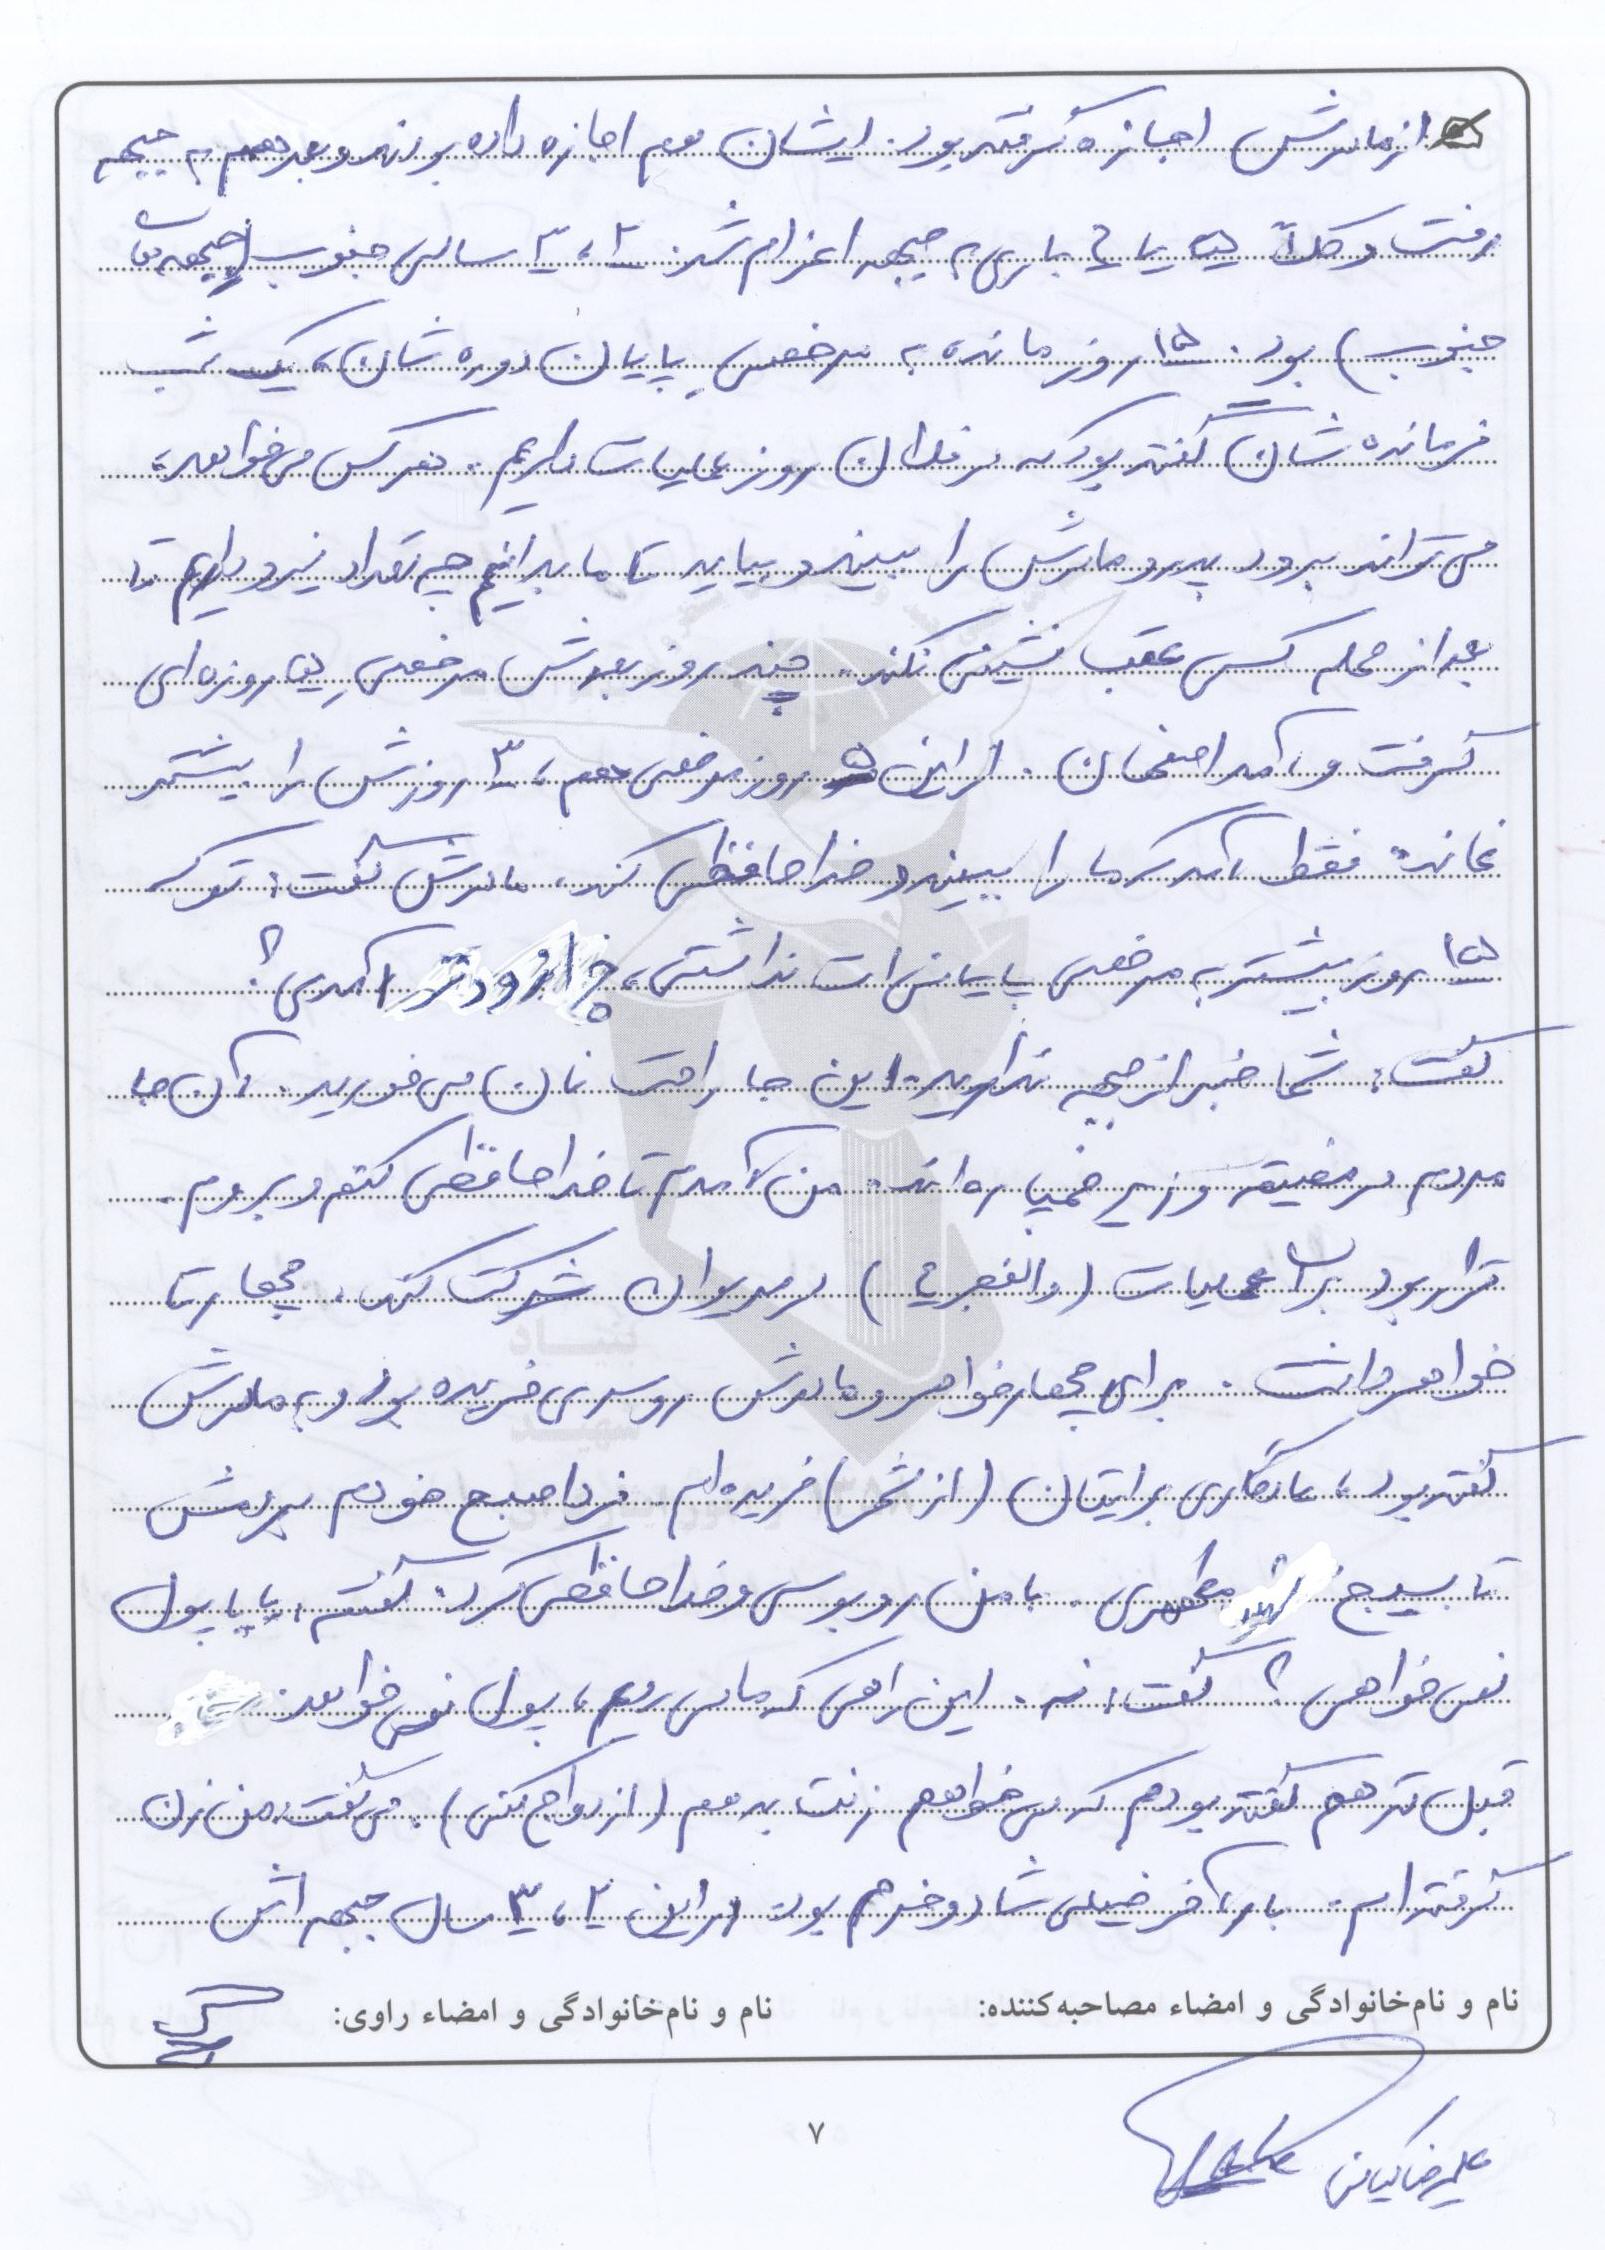 از مادرش اجازه گرفته بود. ایشان هم اجازه داده بودند و بعد هم به جبهه
رفت و کلاً ۵ یا ۶ باری به جبهه اعزام شد. ۲، ۳ سالی جنوب (جبهه‌های
جنوب) بود. ۱۵ روز مانده به مرخصیِ پایان دوره شان، یک شب
فرمانده شان گفته بود که در فلان روز عملیات داریم. هر کس می‌خواهد،
می‌تواند برود پدر و مادرش را ببیند و بیاید تا ما بدانیم چه تعداد نیرو داریم تا
بعد از حمله کسی عقب نشینی نکند. چند روز بعدش مرخصیِ ۵ روزه‌ای
گرفت و آمد اصفهان. از این ۵ روز مرخصی هم، ۳ روزش را بیشتر
نماند. فقط آمد که ما را ببیند و خداحافظی کند. مادرش گفت: تو که
۱۵ روز بیشتر به مرخصی پایانی‌ات نداشتی، چرا زودتر آمدی؟
گفت: شما خبر از جبهه ندارید. این جا راحت نان می‌خورید. آن جا
مردم در مضیقه و زیر خمپاره‌اند. من آمدم تا خداحافظی کنم و بروم.
قرار بود برای عملیات (والفجر ۴) در مریوان شرکت کند. چهار تا
خواهر داشت. برای چهار خواهر و مادرش روسری خریده بود و به مادرش
گفته بود، یادگاری برایتان (از شهر) خریده‌ام. فردا صبح خودم بردمش
تا بسیج شهید مطهری. با من روبوسی و خداحافظی کرد. گفتم: بابا پول
نمی‌خواهی؟ گفت: نه. این راهی که ما می‌رویم، پول نمی‌خواهد.
قبل تر هم گفته بودم که می‌خواهم زنت بدهم (ازدواج کنی). می‌گفت: من زن
گرفته‌ام. بار آخر خیلی شاد و خرم بود. در این ۲، ۳ سال جبهه اش
نام و نام‌خانوادگی و امضاء مصاحبه‌کننده: نام و نام‌خانوادگی و امضاء راوی:
علیرضا کیانی
۷